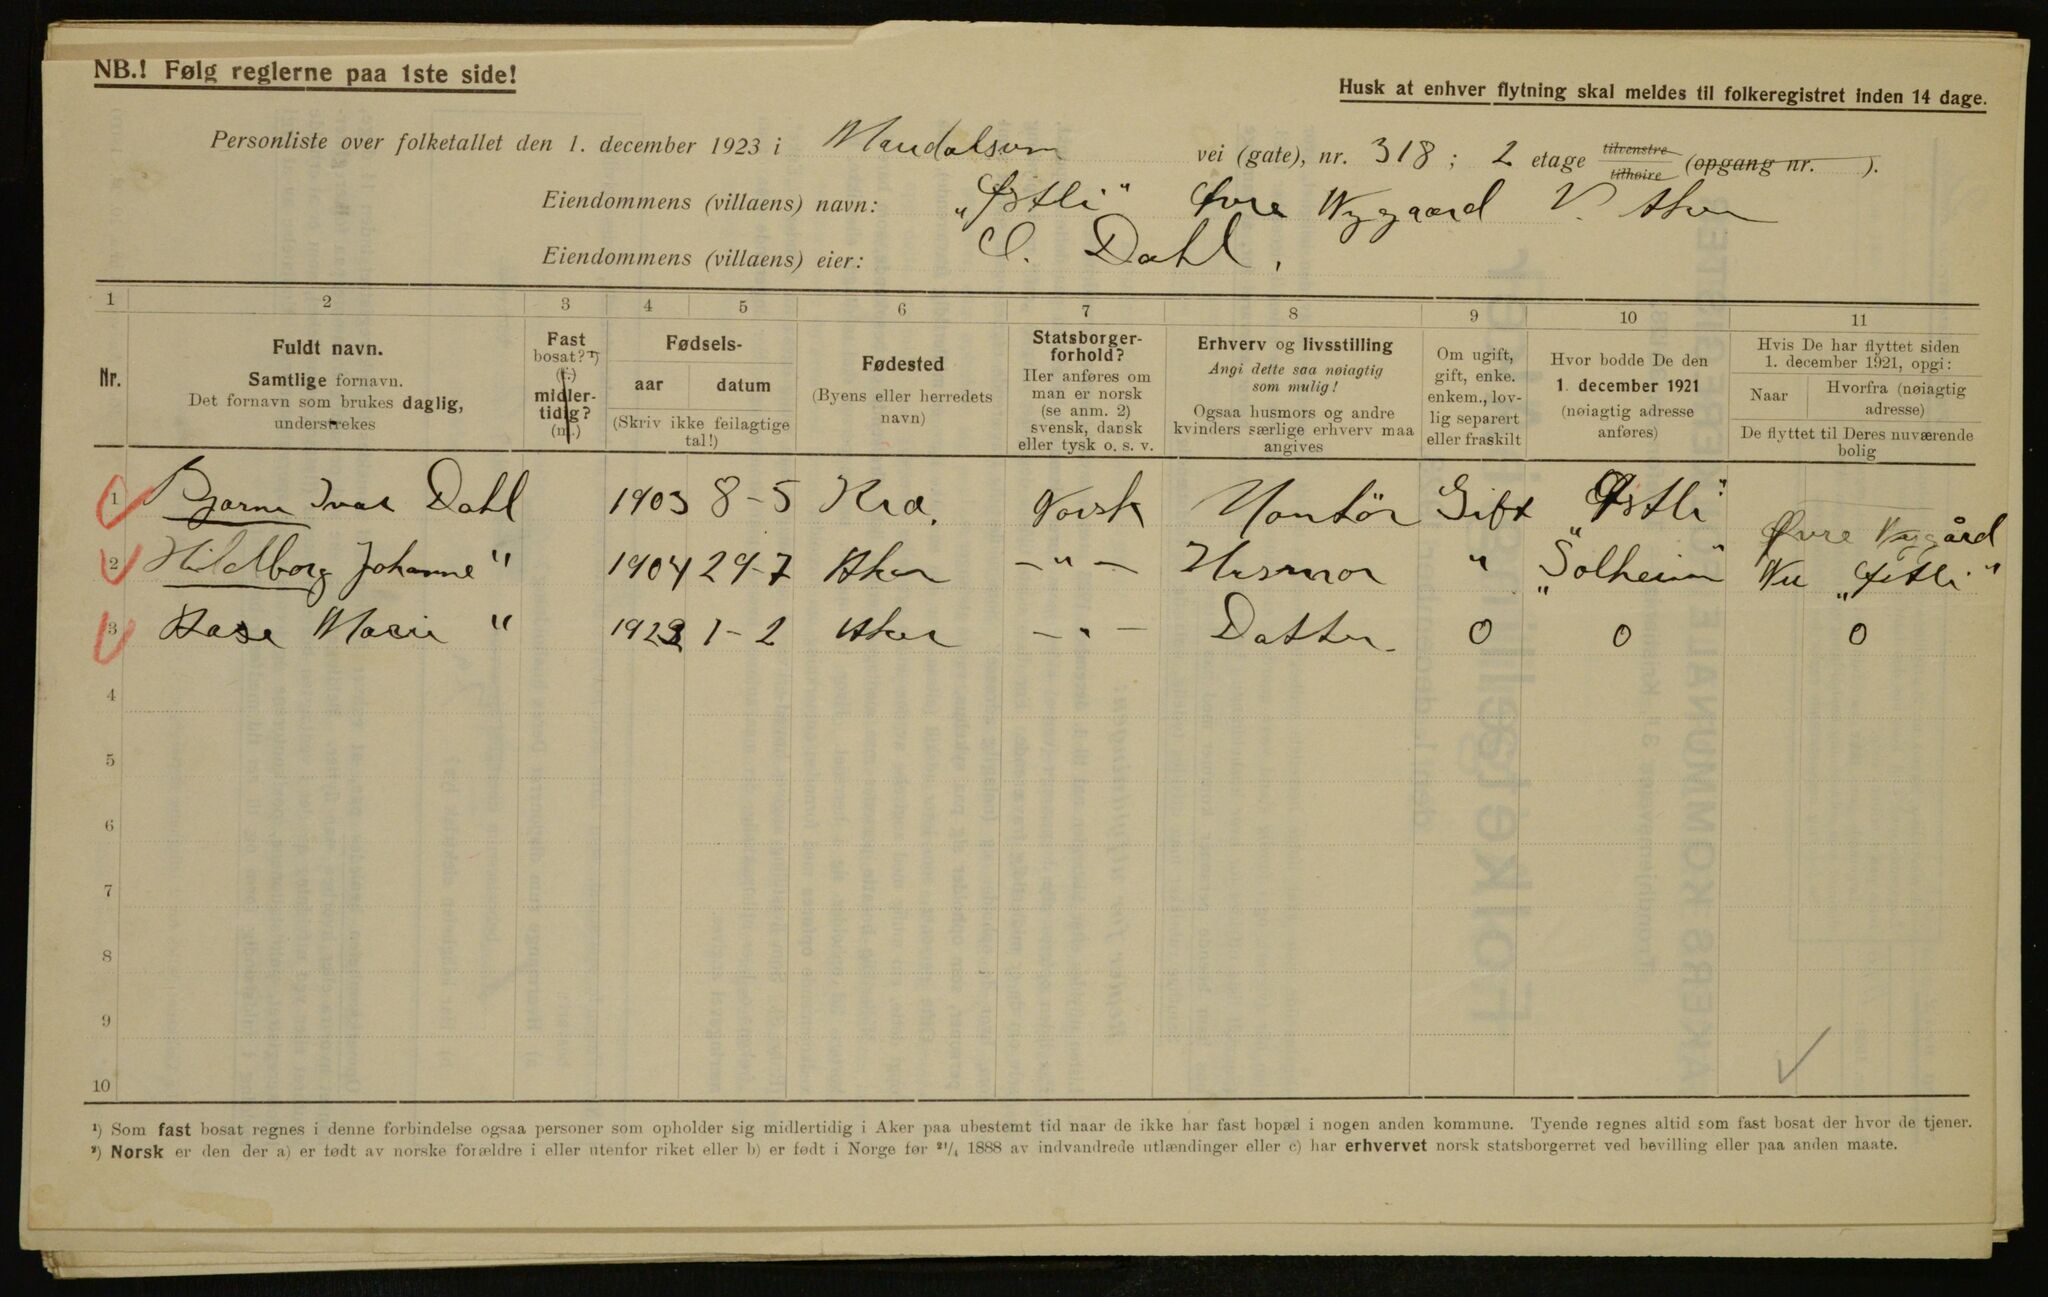 NB.! Følg reglerne paa 1ste side!
Husk at enhver flytning skal meldes til folkeregistret inden 14 dage.
Personliste over folketallet den 1. december 1923 i vei (gate), nr. 318; 2 etage tilvenstre tilhøire (opgang nr. ).
Eiendommens (villaens) navn: „Østli" Øvre Nygaard V. Aker
Eiendommens (villaens) eier: Dahl.
1 2 3 4 5 6 7 8 9 10 11
Nr.
Fuldt navn.
Samtlige fornavn.
Det fornavn som brukes daglig,
understrekes
Fast
bosat? ¹)
(f.)
midler-
tidig?
(m.)
Fødsels-
aar datum
(Skriv ikke feilagtige
tal!)
Fødested
(Byens eller herredets
navn)
Statsborger-
forhold?
Her anføres om
man er norsk
(se anm. 2)
svensk, dansk
eller tysk o. s. v.
Erhverv og livsstilling
Angi dette saa nøiagtig
som mulig!
Ogsaa husmors og andre
kvinders særlige erhverv maa
angives
Om ugift,
gift, enke.
enkem., lov-
lig separert
eller fraskilt
Hvor bodde De den
1. december 1921
(nøiagtig adresse
anføres)
Hvis De har flyttet siden
1. december 1921, opgi:
Naar Hvorfra (nøiagtig
adresse)
De flyttet til Deres nuværende
bolig
1 Bjarne Ivar Dahl 1903 8-5 Kra. Norsk Kontor Gift „Østli"
Øvre Nygård
2 Hildborg Johanne " 1904 29-7 Aker -"- Husmor " „Solheim" Nu „Østli"
3 Aase Marie " 1923 1-2 Aker -"- Datter 0 0 0
4
5
6
7
8
9
10
¹) Som fast bosat regnes i denne forbindelse ogsaa personer som opholder sig midlertidig i Aker paa ubestemt tid naar de ikke har fast bopæl i nogen anden kommune. Tyende regnes altid som fast bosat der hvor de tjener.
²) Norsk er den der a) er født av norske forældre i eller utenfor riket eller b) er født i Norge før 21/4 1888 av indvandrede utlændinger eller c) har erhvervet norsk statsborgerret ved bevilling eller paa anden maate.